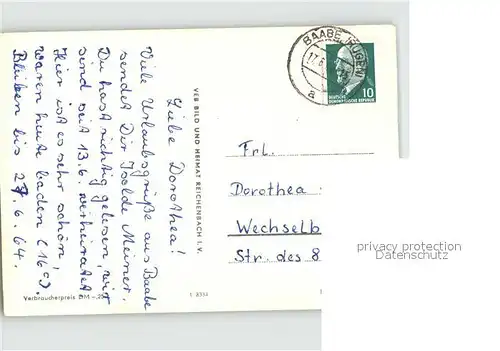 Liebe Dorothea!
Viele Urlaubsgrüße aus Baabe
sendet Dir Isolde Meiner.
Du hast richtig gelesen, wir
sind seit 13.6. verheiratet.
Hier ist es sehr schön,
waren heute baden (16°C).
Bleiben bis 27.6.64.
Verbraucherpreis DM -,25
VEB BILD UND HEIMAT REICHENBACH I. V.
BAABE (RÜGEN)
a
10
DEUTSCHE
DEMOKRATISCHE REPUBLIK
Frl.
Dorothea
Wechselb
Str. des 8
privacy protection
Datenschutz